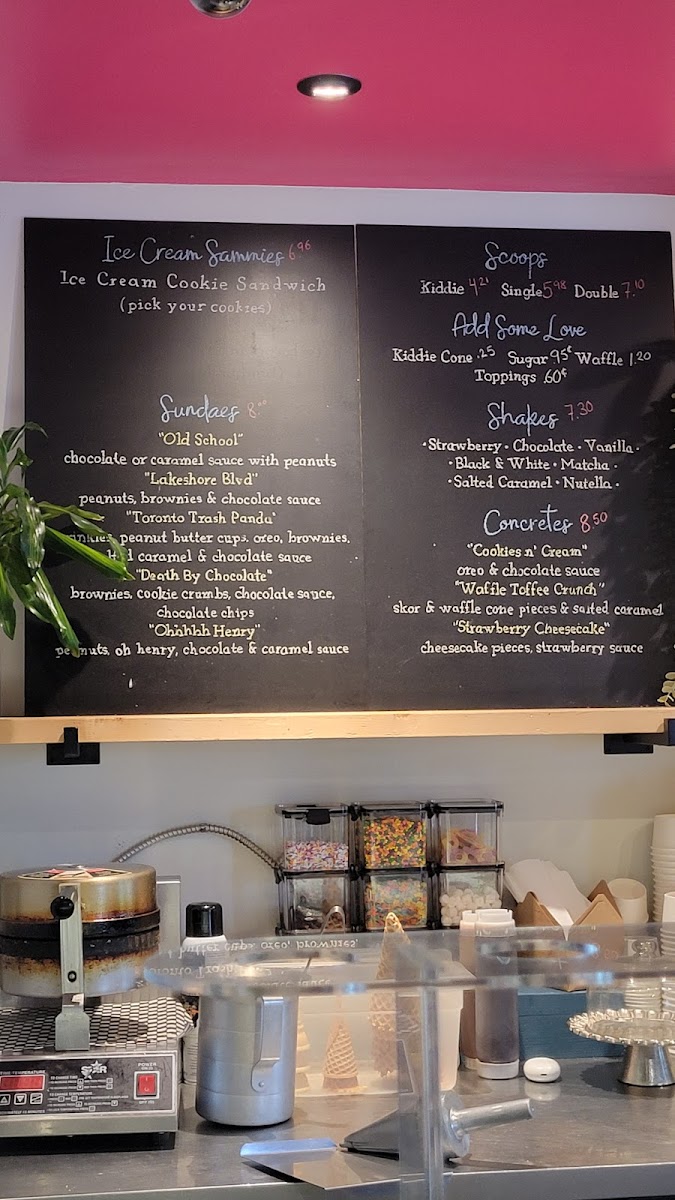 Ice Cream Sammies 6.96
Ice Cream Cookie Sandwich
(pick your cookies)
Sundaes 8.00
"Old School"
chocolate or caramel sauce with peanuts
"Lakeshore Blvd"
peanuts, brownies & chocolate sauce
"Toronto Trash Panda"
peanut butter cups, oreo, brownies,
caramel & chocolate sauce
"Death By Chocolate"
brownies, cookie crumbs, chocolate sauce,
chocolate chips
"Oh'ahhh Henry"
peanuts, oh henry, chocolate & caramel sauce
Scoops
Kiddie 4.21 Single 5.98 Double 7.10
Add Some Love
Kiddie Cone .25 Sugar 95¢ Waffle 1.20
Toppings .60¢
Shakes 7.30
· Strawberry · Chocolate · Vanilla ·
· Black & White · Matcha ·
· Salted Caramel · Nutella ·
Concretes 8.50
"Cookies n' Cream"
oreo & chocolate sauce
"Waffle Toffee Crunch"
skor & waffle cone pieces & salted caramel
"Strawberry Cheesecake"
cheesecake pieces, strawberry sauce
butter cups, oreo, brownies,
STAR
POWER